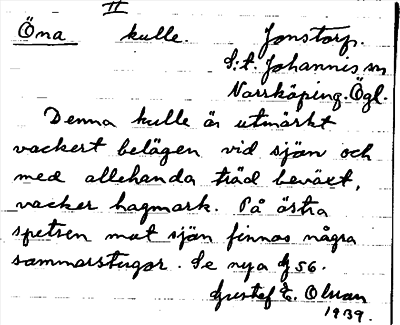 II
Öna kulle. Jonstorp.
S:t Johannis sn
Norrköping. Ögl.
Denna kulle är utmärkt
vackert belägen vid sjön och
med allehanda träd beväxt,
vacker hagmark. På östra
spetsen mot sjön finnas några
sommarstugor. Se nya g 56.
Gustaf E. Olsson
1939.